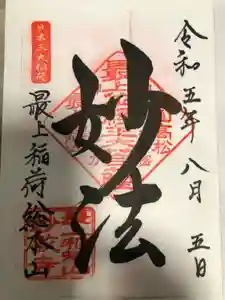 令和五年八月五日
妙法
最上稲荷総本山
日本三大稲荷